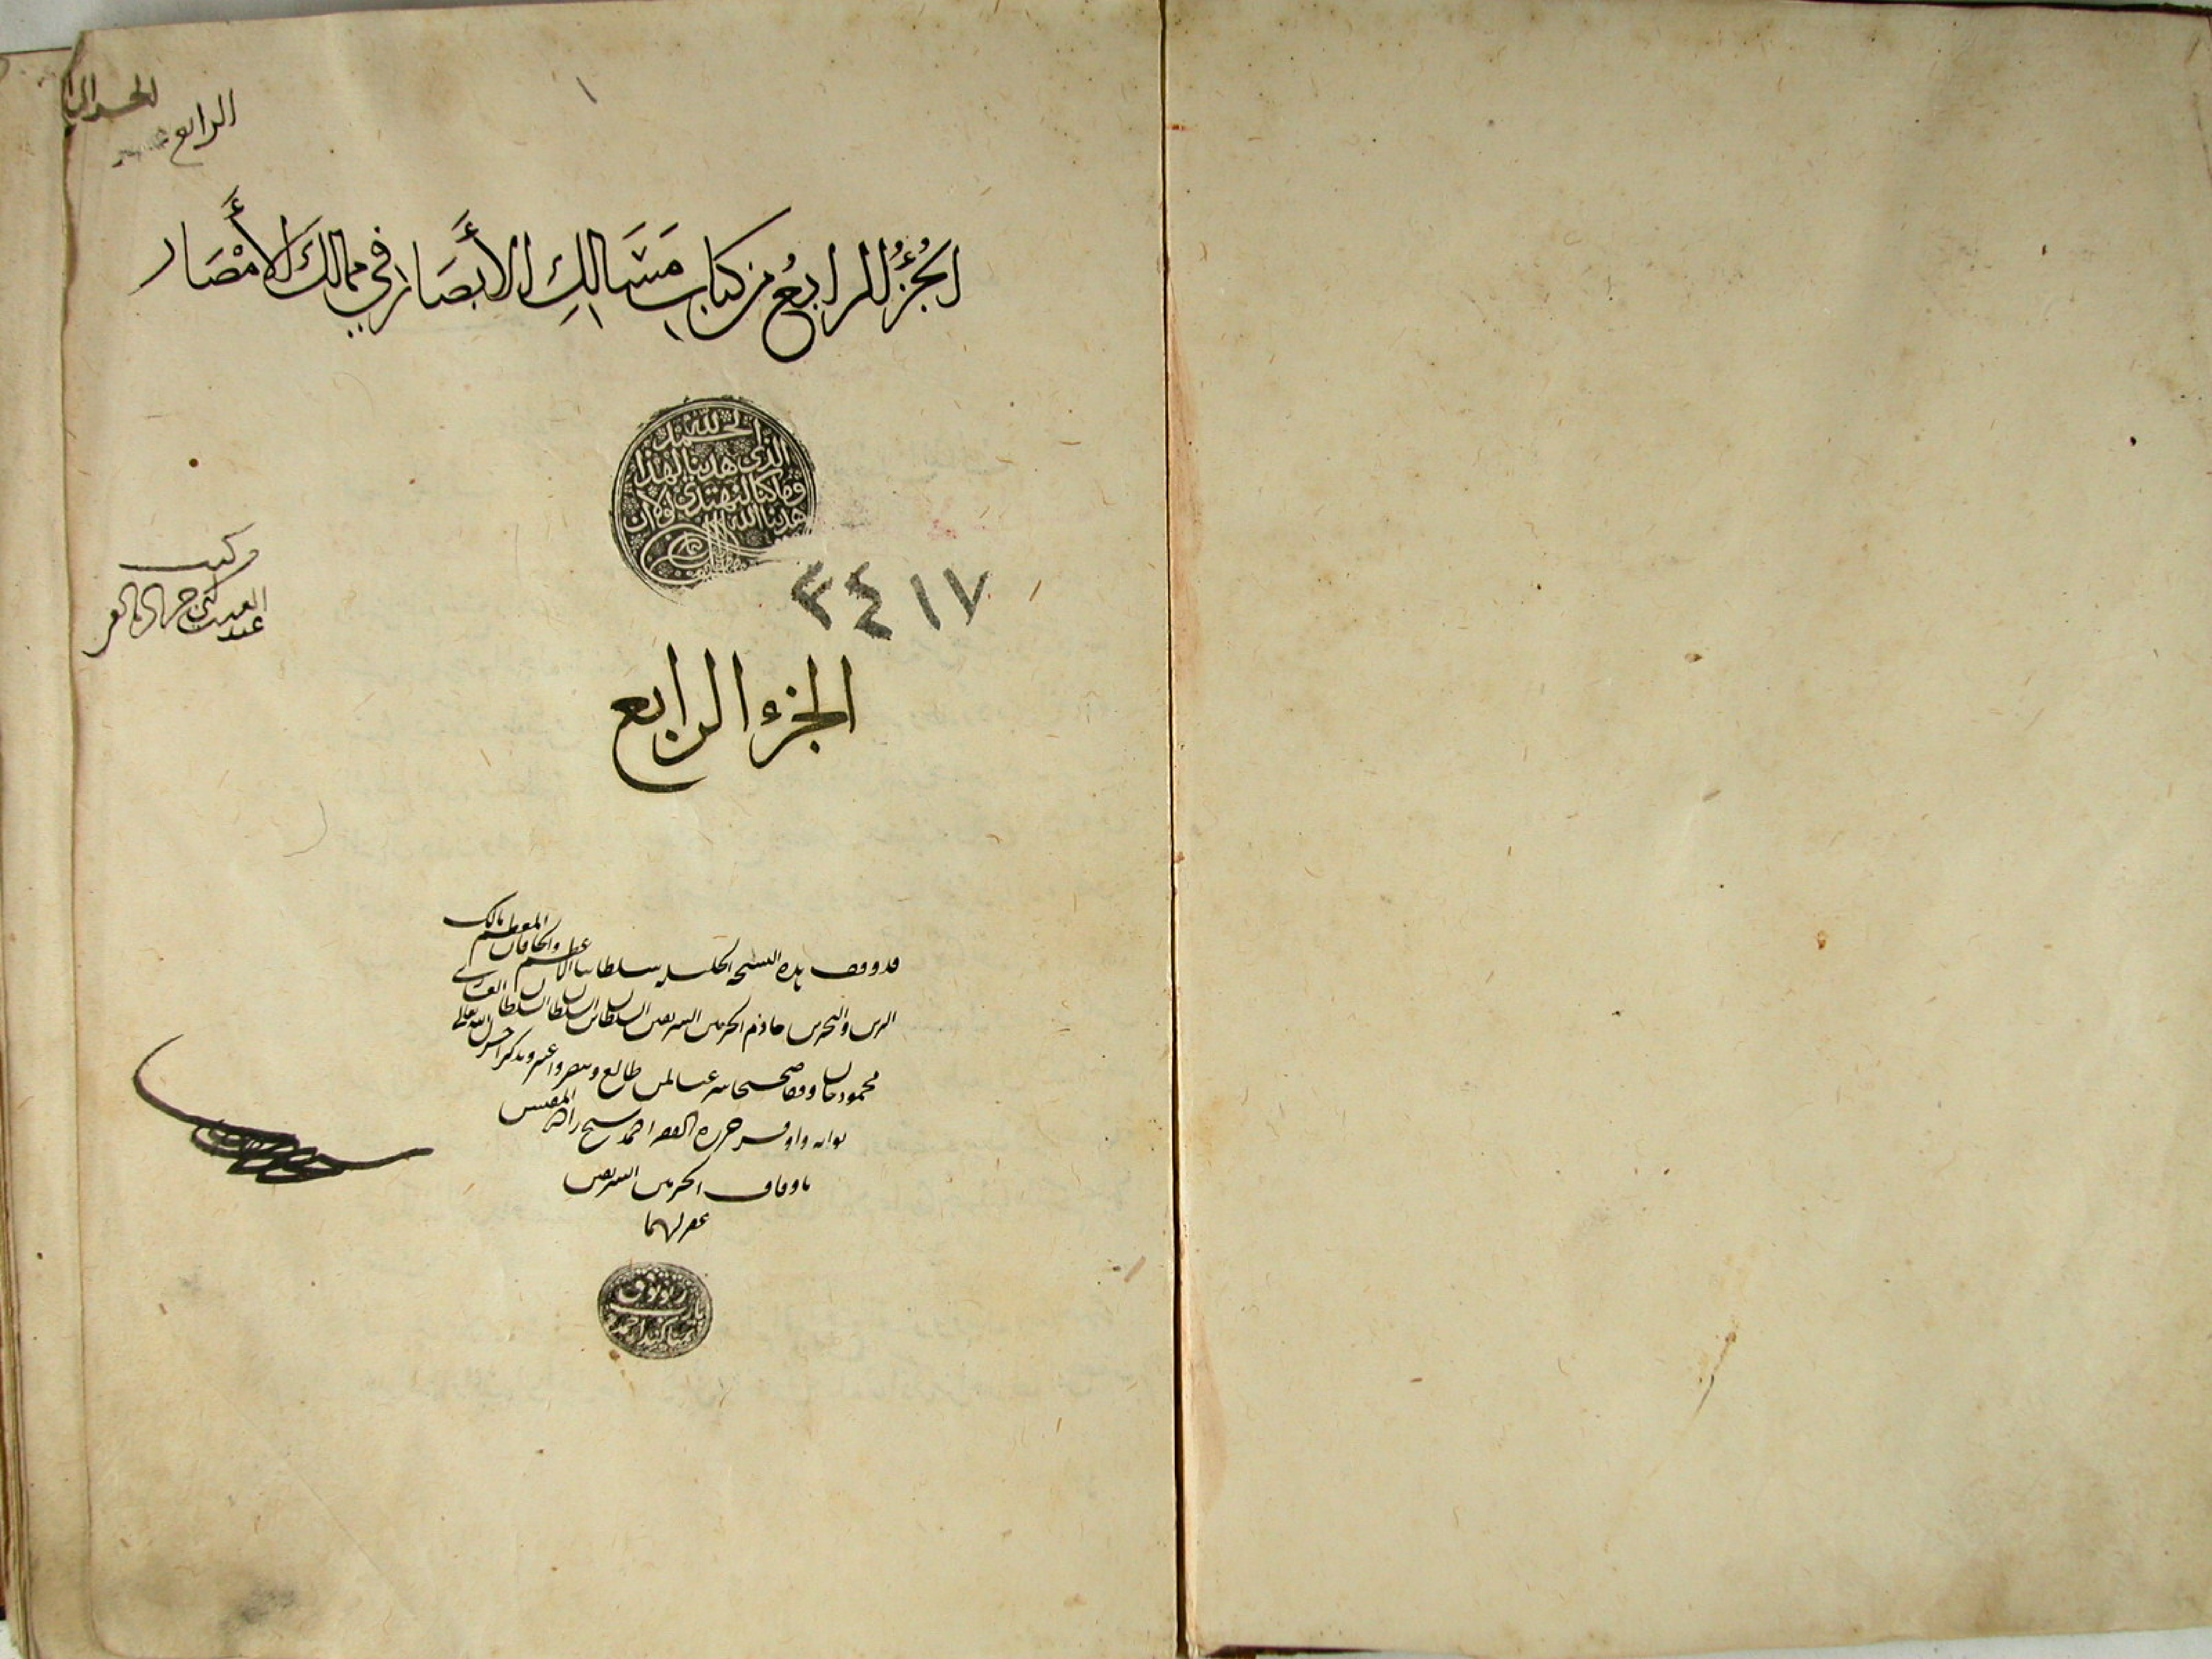 ١
الرابع
الجُزْءُ الرابعُ من كتابِ مَسَالِكِ الأَبصَار في ممالك الأَمْصَار
الحمد لله
الذي هدينا لهذا
وما كنا لنهتدي لولا ان
هدينا الله
٣٤١٧
الجزء الرابع
قد وقف هذه النسخة الجليلة سلطاننا الأعظم والخاقان المعظم مالك
البرين والبحرين خادم الحرمين الشريفين السلطان بن السلطان السلطان الغازي
محمود خان وقفا صحيحا شرعيا لمن طالع وتبصر واعتبر وتذكر اجزل الله تعالى
ثوابه واوفر حرره الفقير احمد شيخ زاده المفتش
باوقاف الحرمين الشريفين
غفر لهما